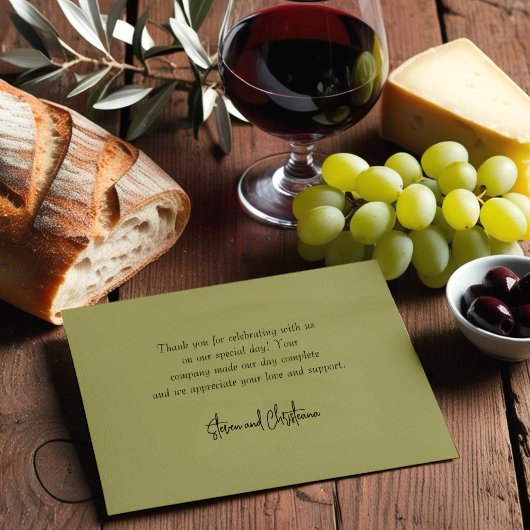 Thank you for celebrating with us
on our special day! Your
company made our day complete
and we appreciate your love and support.
Steven and Christeana